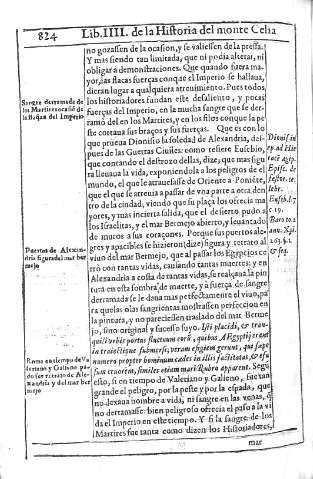 824
Lib. IIII. de la Historia del monte Celia
no gozassen de la ocasion, y se valiessen de la pressa.
Y mas siendo tan limitada, que ni podia alterar, ni
obligar a demonstraciones. Que quando fuera ma-
yor, las flacas fuerças conque el Imperio se hallaua,
dieran lugar a qualquiera atreuimiento. Pues todos
los historiadores fundan este desaliento, y pocas
fuerças del Imperio, en la mucha sangre que se der-
ramó del en los Martires, y en los filos conque la pe-
ste cortaua sus braços y sus fuerças. Que es con lo
que prueua Dionisio la soledad de Alexandria, des-
pues de las Guerras Ciuiles: como refiere Eusebio,
que contando el destrozo dellas, dize; que mas sigu
ra lleuaua la vida, exponiendola a los peligros de el
mundo, el que le atrauiesse de Oriente a Poniẽte,
que el que se atreuia a passar de vna parte a otra den
tro de la ciudad; viendo que su plaça les ofrecia ma
yores, y mas incierta salida, que el desierto pudo a
los Israelitas, y el mar Bermejo abierto, y leuantado
de muros a sus coraçones. Porque sus puertos ale-
gres y apacibles se hizieron (dize) figura y retrato al
viuo del mar Bermejo, que al passar los Egypcios cer
ró con tantas vidas, causando tantas muertes: y en
Alexandria a costa de tantas vidas, se realçaua la pin
tura en esta sombra de muerte, y a fuerça de sangre
derramada se le daua mas perfectamente el viuo, pa
ra que las olas sangrientas mostrassen perfeccion en
la pintura, y no pareciessen traslado del mar Berme
jo, sino original y sucesso suyo. Isti placidi, & tran-
quilli vrbis portus fluctuum corũ, quibus AEgyptij erant
in traiectione submersi, veram effigiem gerunt, que sæpe
numero propter hominum cædes in illis factitatas, & effu
sum cruorem, similes etiam mari Rubro apparent. Segũ
esto, si en tiempo de Valeriano y Galieno, fue tan
grande el peligro, por la peste y por la espada, que
no dexaua hombre a vida, ni sangre en las venas, q̃
no derramasse: bien peligroso ofrecia el passo a la vi
da el Imperio en este tiempo. Y si la sangre de los
Martires fue tanta como dizen los Historiadores,
mar
Sangre derramada de
los Martires ocasiõ de
la
del Imperio
Puertos de Alexan-
dria figura del mar ber
mejo
Roma en tiempo de Va
leriano y Galieno pa-
de
retrato de Ale-
xandria y del mar ber
mejo
Dionis. in
Euseb. l. 7
c. 19.
& seq.